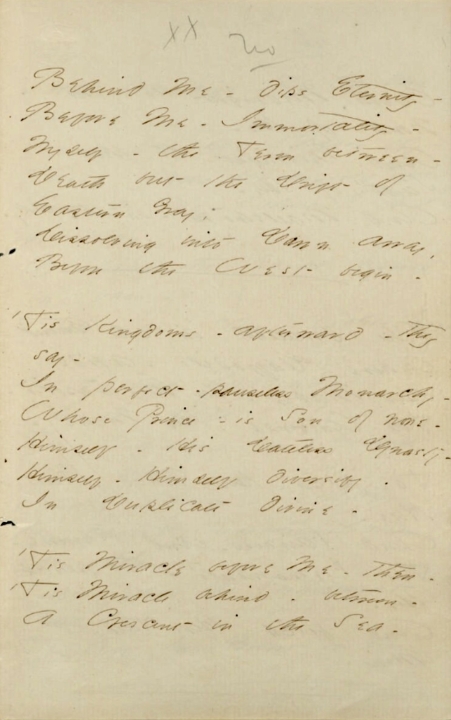 XX No
Behind Me - dips Eternity -
Before Me - Immortality -
Myself - the Term between -
Death but the Drift of
Eastern Gray,
Dissolving into Dawn away,
Before the West begin -
'Tis Kingdoms - afterward - they
say -
In perfect - pauseless Monarchy -
Whose Prince - is Son of None -
Himself - His Dateless Dynasty -
Himself - Himself diversify -
In Duplicate divine -
'Tis Miracle before Me - then -
'Tis Miracle behind - between -
A Crescent in the Sea -